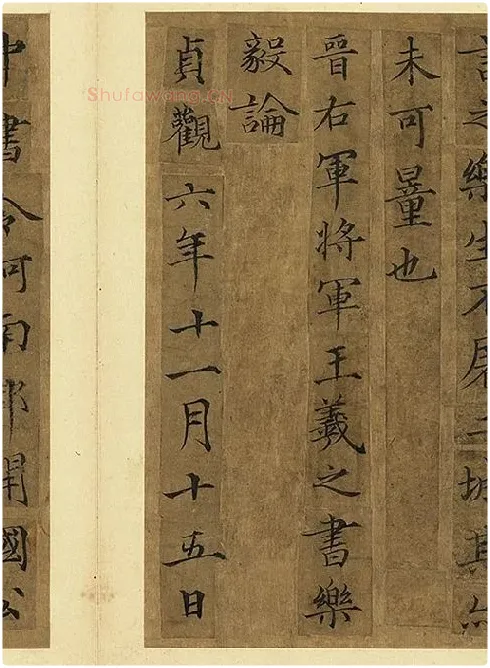 言之樂生不屠二城其亦
未可量也
晉右軍將軍王羲之書樂
毅論
貞觀六年十一月十五日
中書令河南郡開國公
Shufawang.CN